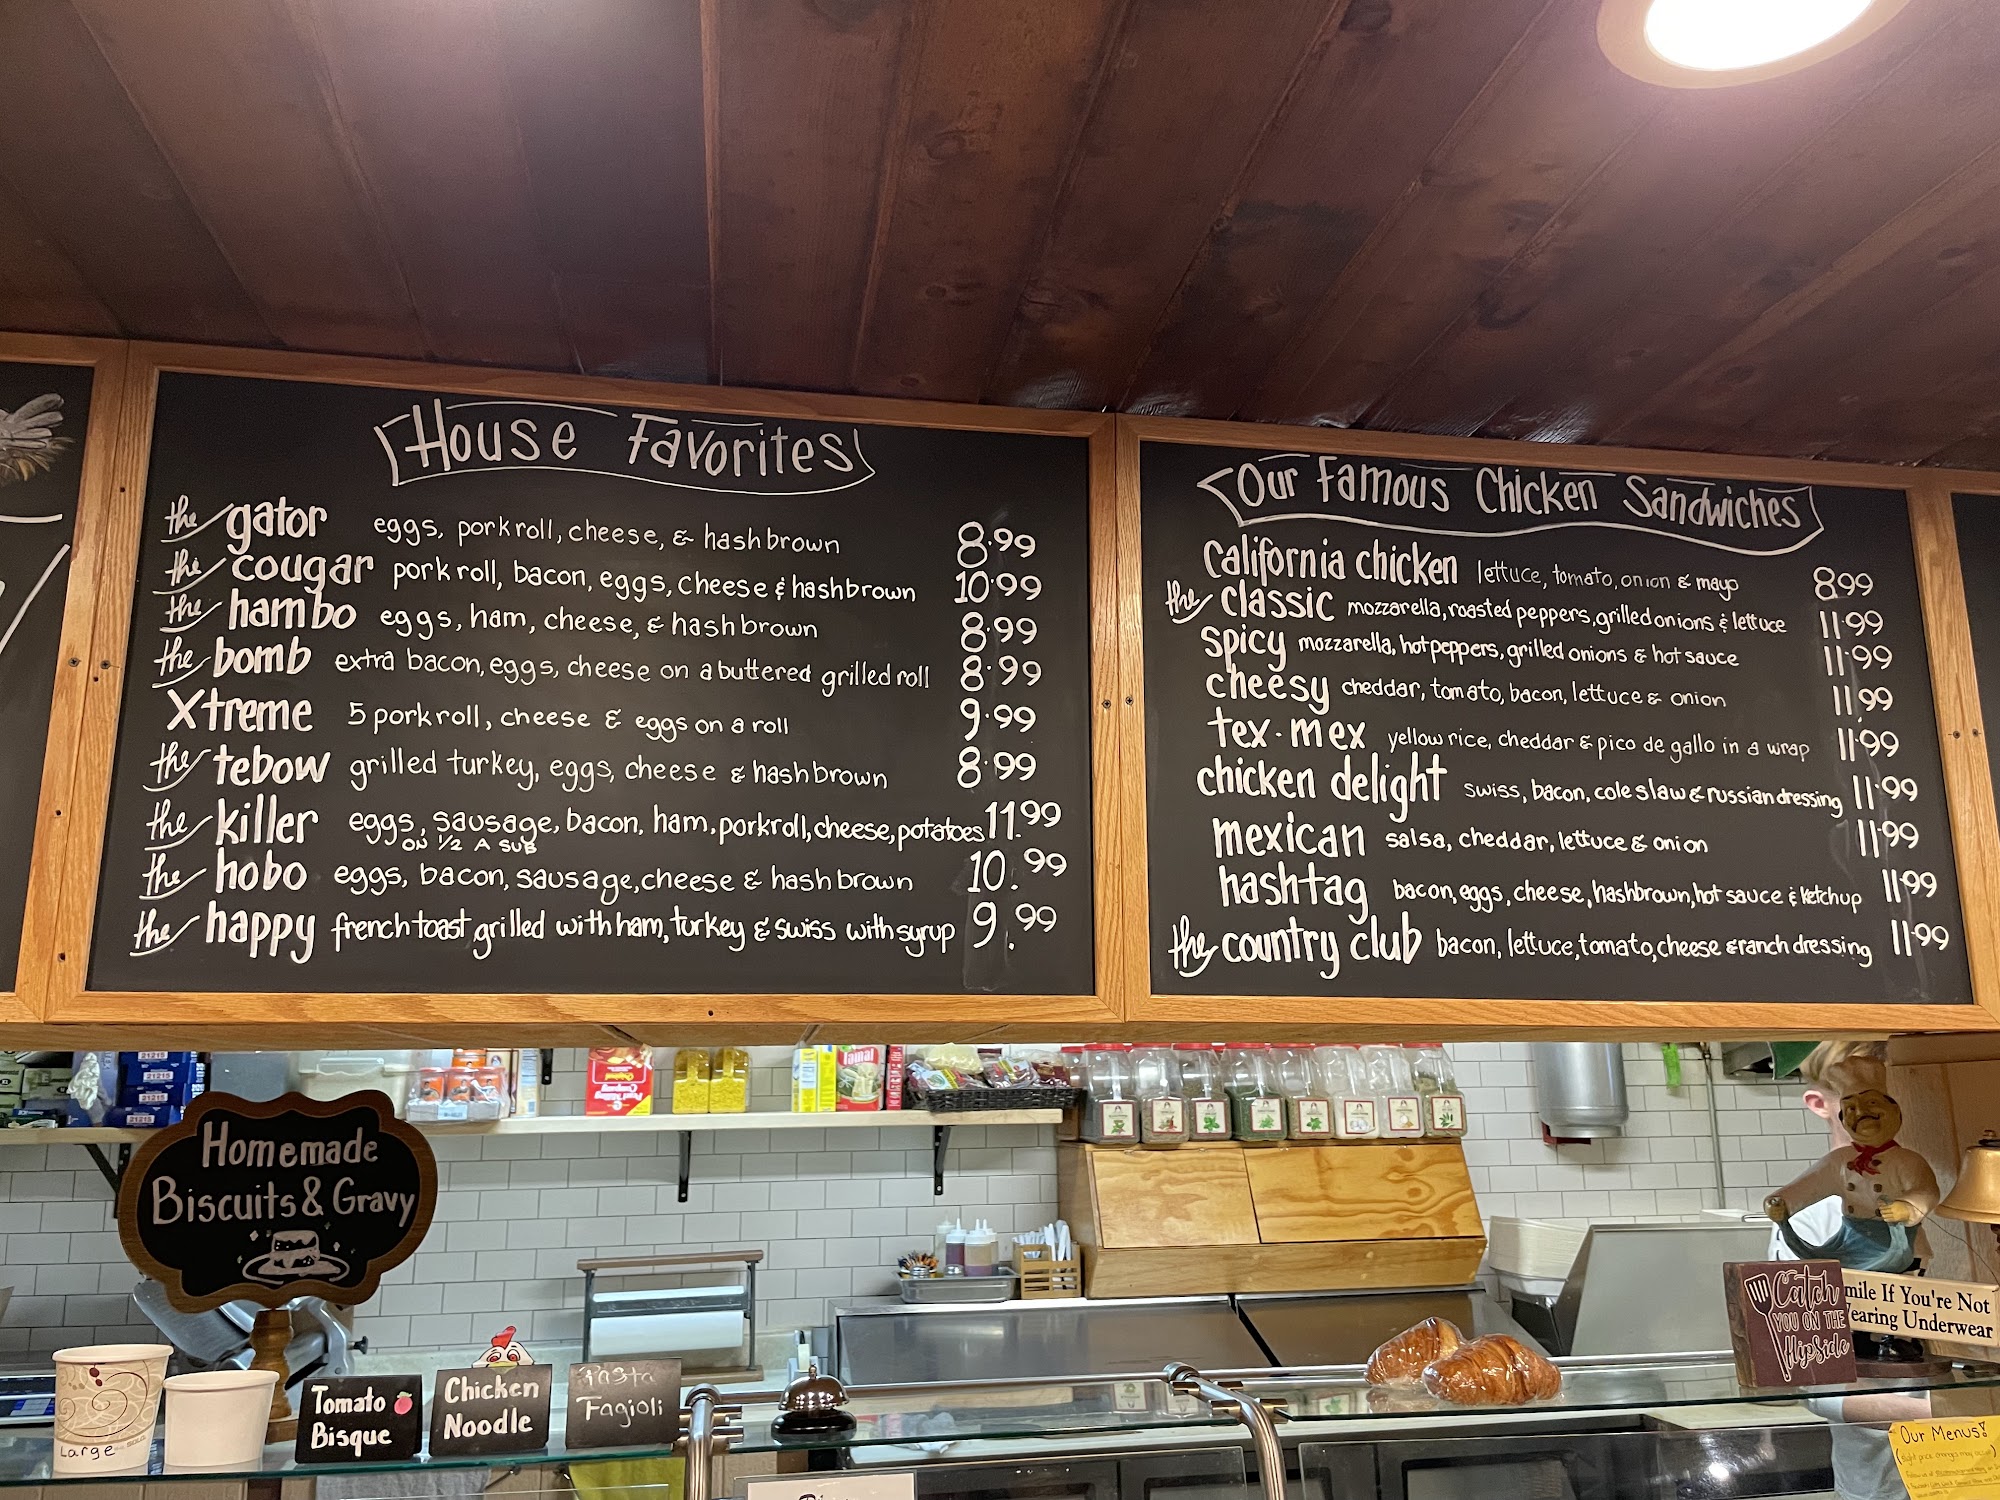 House Favorites
the gator eggs, pork roll, cheese, & hash brown 8.99
the cougar pork roll, bacon, eggs, cheese & hash brown 10.99
the hambo eggs, ham, cheese, & hash brown 8.99
the bomb extra bacon, eggs, cheese on a buttered grilled roll 8.99
Xtreme 5 pork roll, cheese & eggs on a roll 9.99
the tebow grilled turkey, eggs, cheese & hash brown 8.99
the killer eggs, sausage, bacon, ham, porkroll, cheese, potatoes 11.99
ON 1/2 A SUB
the hobo eggs, bacon, sausage, cheese & hash brown 10.99
the happy french toast grilled with ham, turkey & swiss with syrup 9.99
Our Famous Chicken Sandwiches
California chicken lettuce, tomato, onion & mayo 8.99
the classic mozzarella, roasted peppers, grilled onions & lettuce 11.99
spicy mozzarella, hot peppers, grilled onions & hot sauce 11.99
cheesy cheddar, tomato, bacon, lettuce & onion 11.99
tex-mex yellow rice, cheddar & pico de gallo in a wrap 11.99
chicken delight swiss, bacon, cole slaw & russian dressing 11.99
mexican salsa, cheddar, lettuce & onion 11.99
hashtag bacon, eggs, cheese, hashbrown, hot sauce & ketchup 11.99
the country club bacon, lettuce, tomato, cheese & ranch dressing 11.99
21215
21215
21215
21215
Tamal
Homemade
Biscuits & Gravy
Large
Tomato
Bisque
Chicken
Noodle
Pasta
Fagioli
Catch
YOU ON THE
flipside
mile If You're Not
earing Underwear
Our Menus!